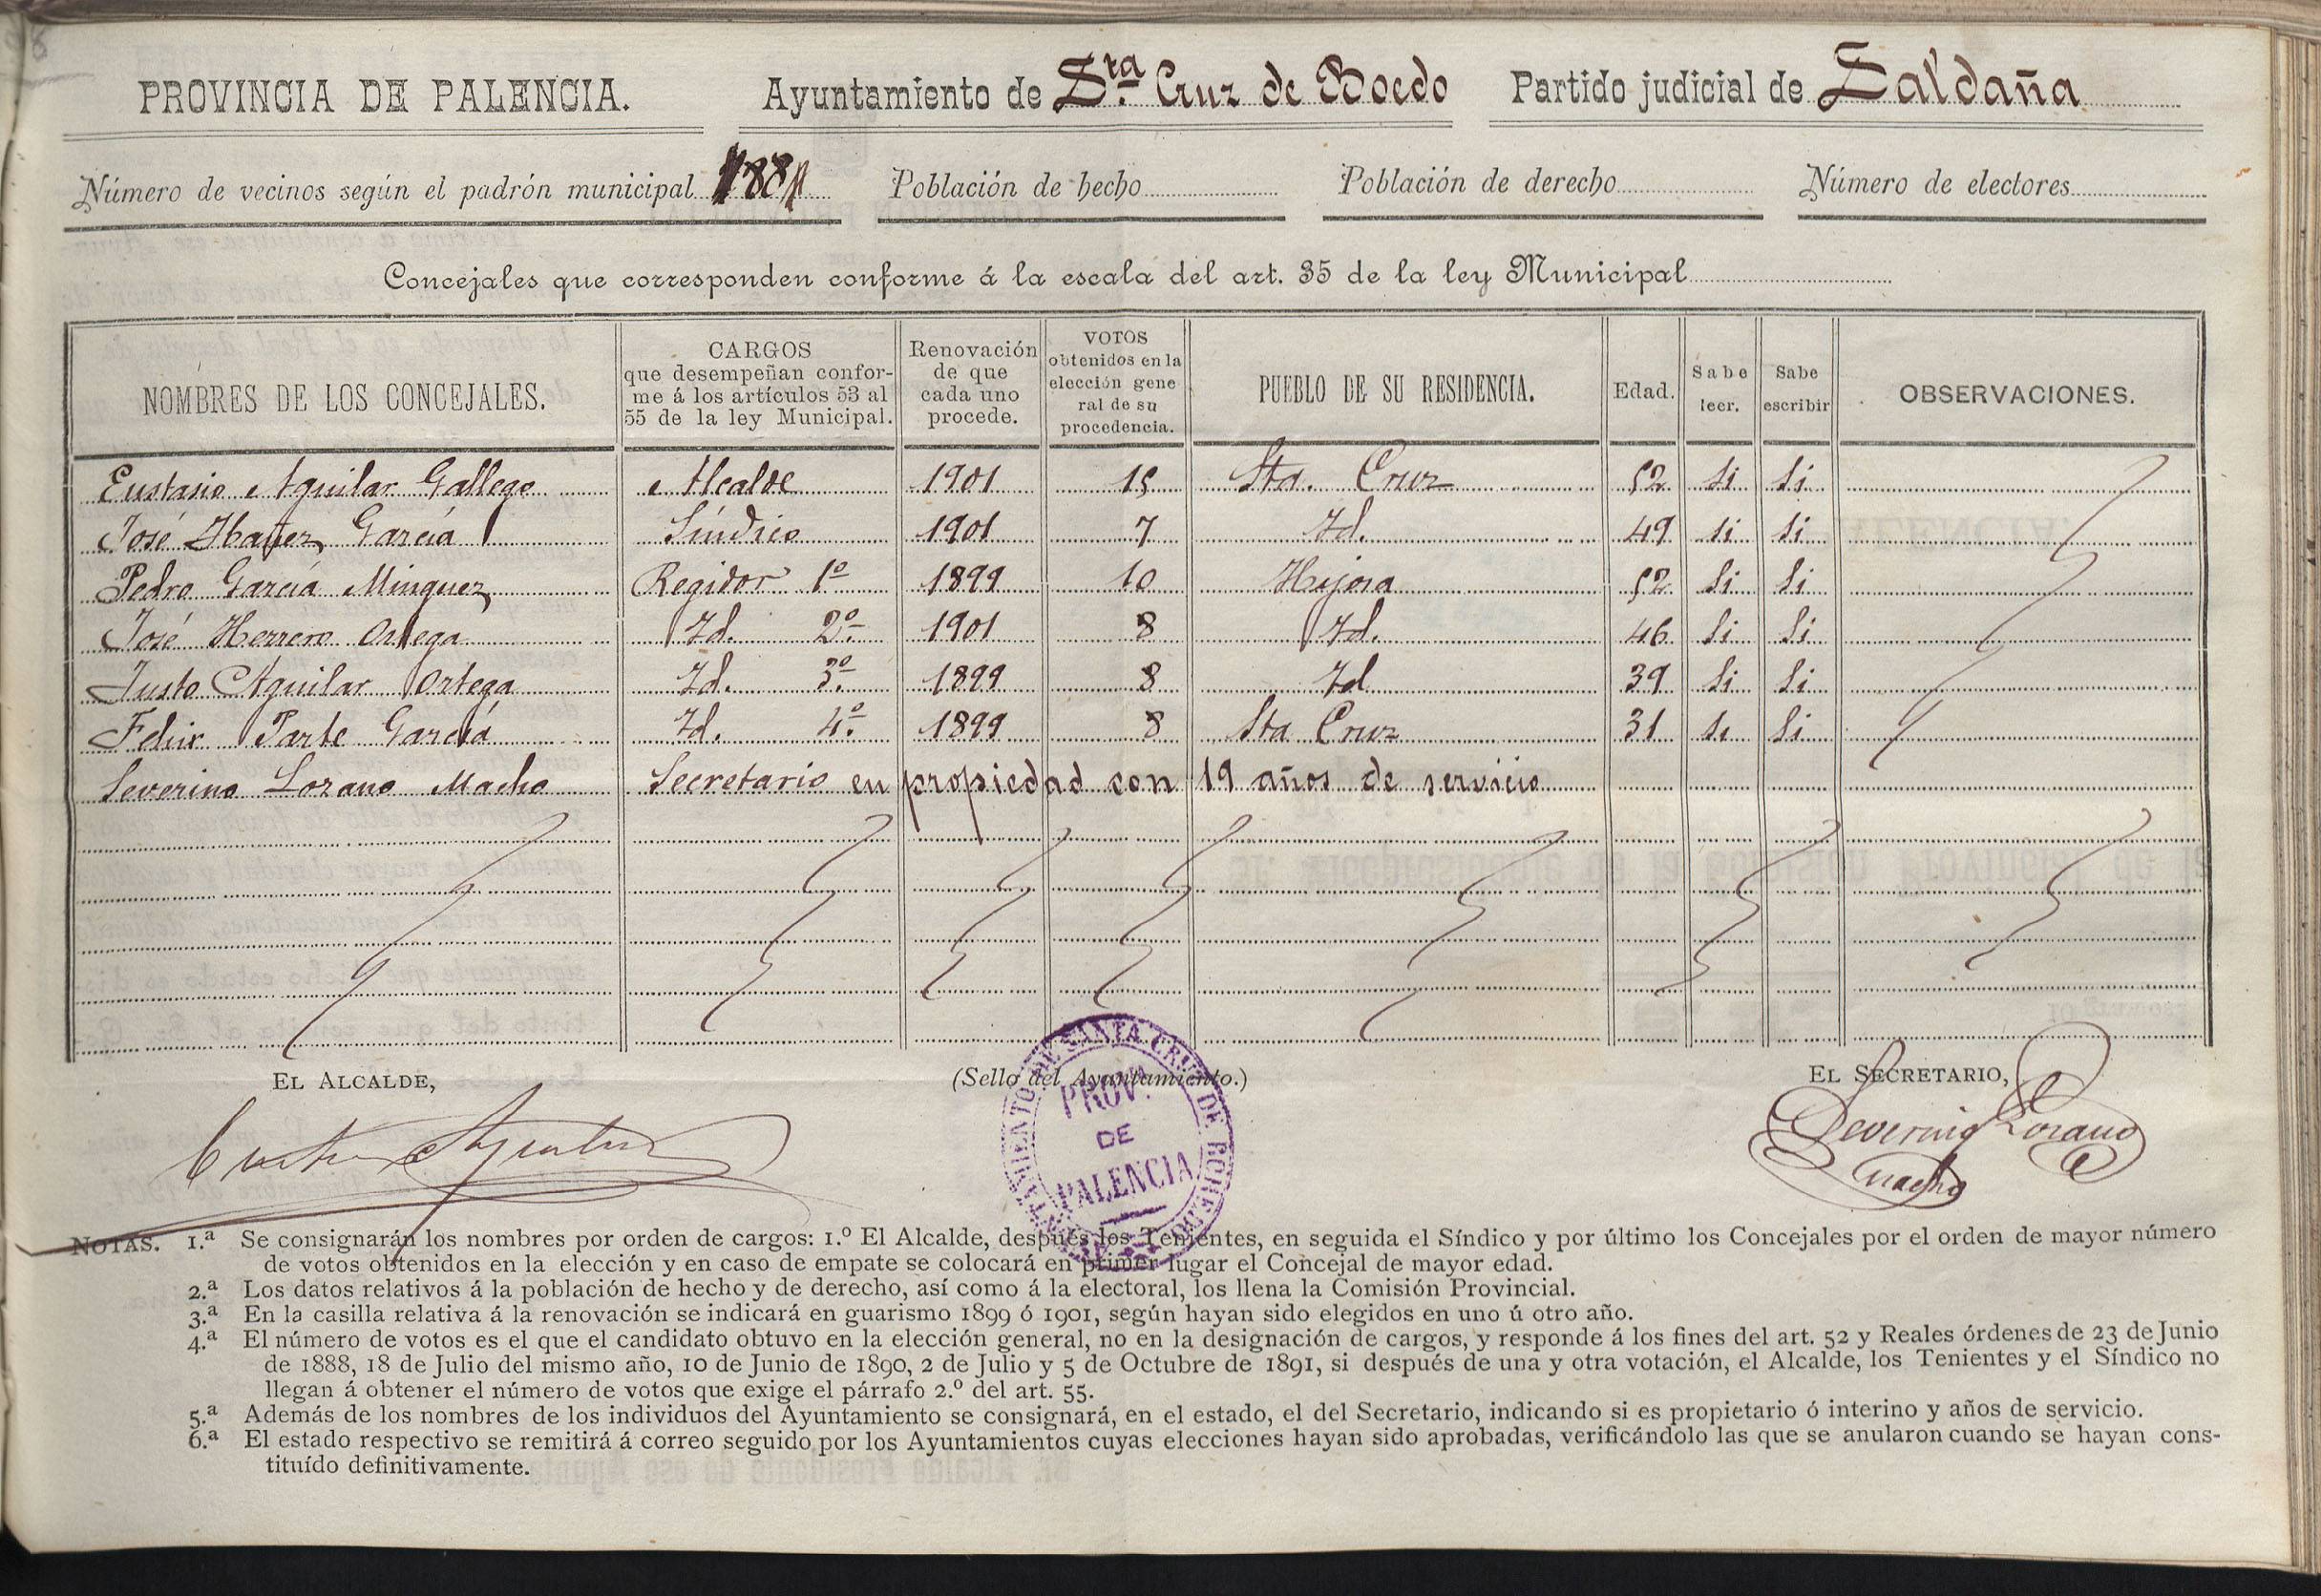 PROVINCIA DE PALENCIA. Ayuntamiento de Sta. Cruz de Boedo Partido judicial de Saldaña
Número de vecinos según el padrón municipal Población de hecho Población de derecho Número de electores
Concejales que corresponden conforme á la escala del art. 35 de la ley Municipal
NOMBRES DE LOS CONCEJALES. CARGOS que desempeñan conforme á los artículos 53 al 55 de la ley Municipal. Renovación de que cada uno procede. VOTOS obtenidos en la elección gene ral de su procedencia. PUEBLO DE SU RESIDENCIA. Edad. Sabe leer. Sabe escribir OBSERVACIONES.
Eustasio Aguilar Gallego Alcalde 1901 15 Sta. Cruz 52 Si Si
José Ibañez García Síndico 1901 7 Id. 49 si Si
Pedro García Minguez Regidor 1º 1899 10 Hijosa 52 Si Si
José Herrero Ortega Id. 2º 1901 8 Id. 46 Si Si
Justo Aguilar Ortega Id. 3º 1899 8 Id 39 Si Si
Felix Parte García Id. 4º 1899 8 Sta Cruz 31 si Si
Severino Lozano Macho Secretario en propiedad con 19 años de servicio
EL ALCALDE, (Sello del Ayuntamiento.) EL SECRETARIO,
AYUNTAMIENTO DE SANTA CRUZ DE BOHEDO
PROV.ª
DE
PALENCIA
Severino Lozano
Macho
NOTAS. 1.ª Se consignarán los nombres por orden de cargos: 1.º El Alcalde, después los Tenientes, en seguida el Síndico y por último los Concejales por el orden de mayor número
de votos obtenidos en la elección y en caso de empate se colocará en primer lugar el Concejal de mayor edad.
2.ª Los datos relativos á la población de hecho y de derecho, así como á la electoral, los llena la Comisión Provincial.
3.ª En la casilla relativa á la renovación se indicará en guarismo 1899 ó 1901, según hayan sido elegidos en uno ú otro año.
4.ª El número de votos es el que el candidato obtuvo en la elección general, no en la designación de cargos, y responde á los fines del art. 52 y Reales órdenes de 23 de Junio
de 1888, 18 de Julio del mismo año, 10 de Junio de 1890, 2 de Julio y 5 de Octubre de 1891, si después de una y otra votación, el Alcalde, los Tenientes y el Síndico no
llegan á obtener el número de votos que exige el párrafo 2.º del art. 55.
5.ª Además de los nombres de los individuos del Ayuntamiento se consignará, en el estado, el del Secretario, indicando si es propietario ó interino y años de servicio.
6.ª El estado respectivo se remitirá á correo seguido por los Ayuntamientos cuyas elecciones hayan sido aprobadas, verificándolo las que se anularon cuando se hayan cons-
tituído definitivamente.